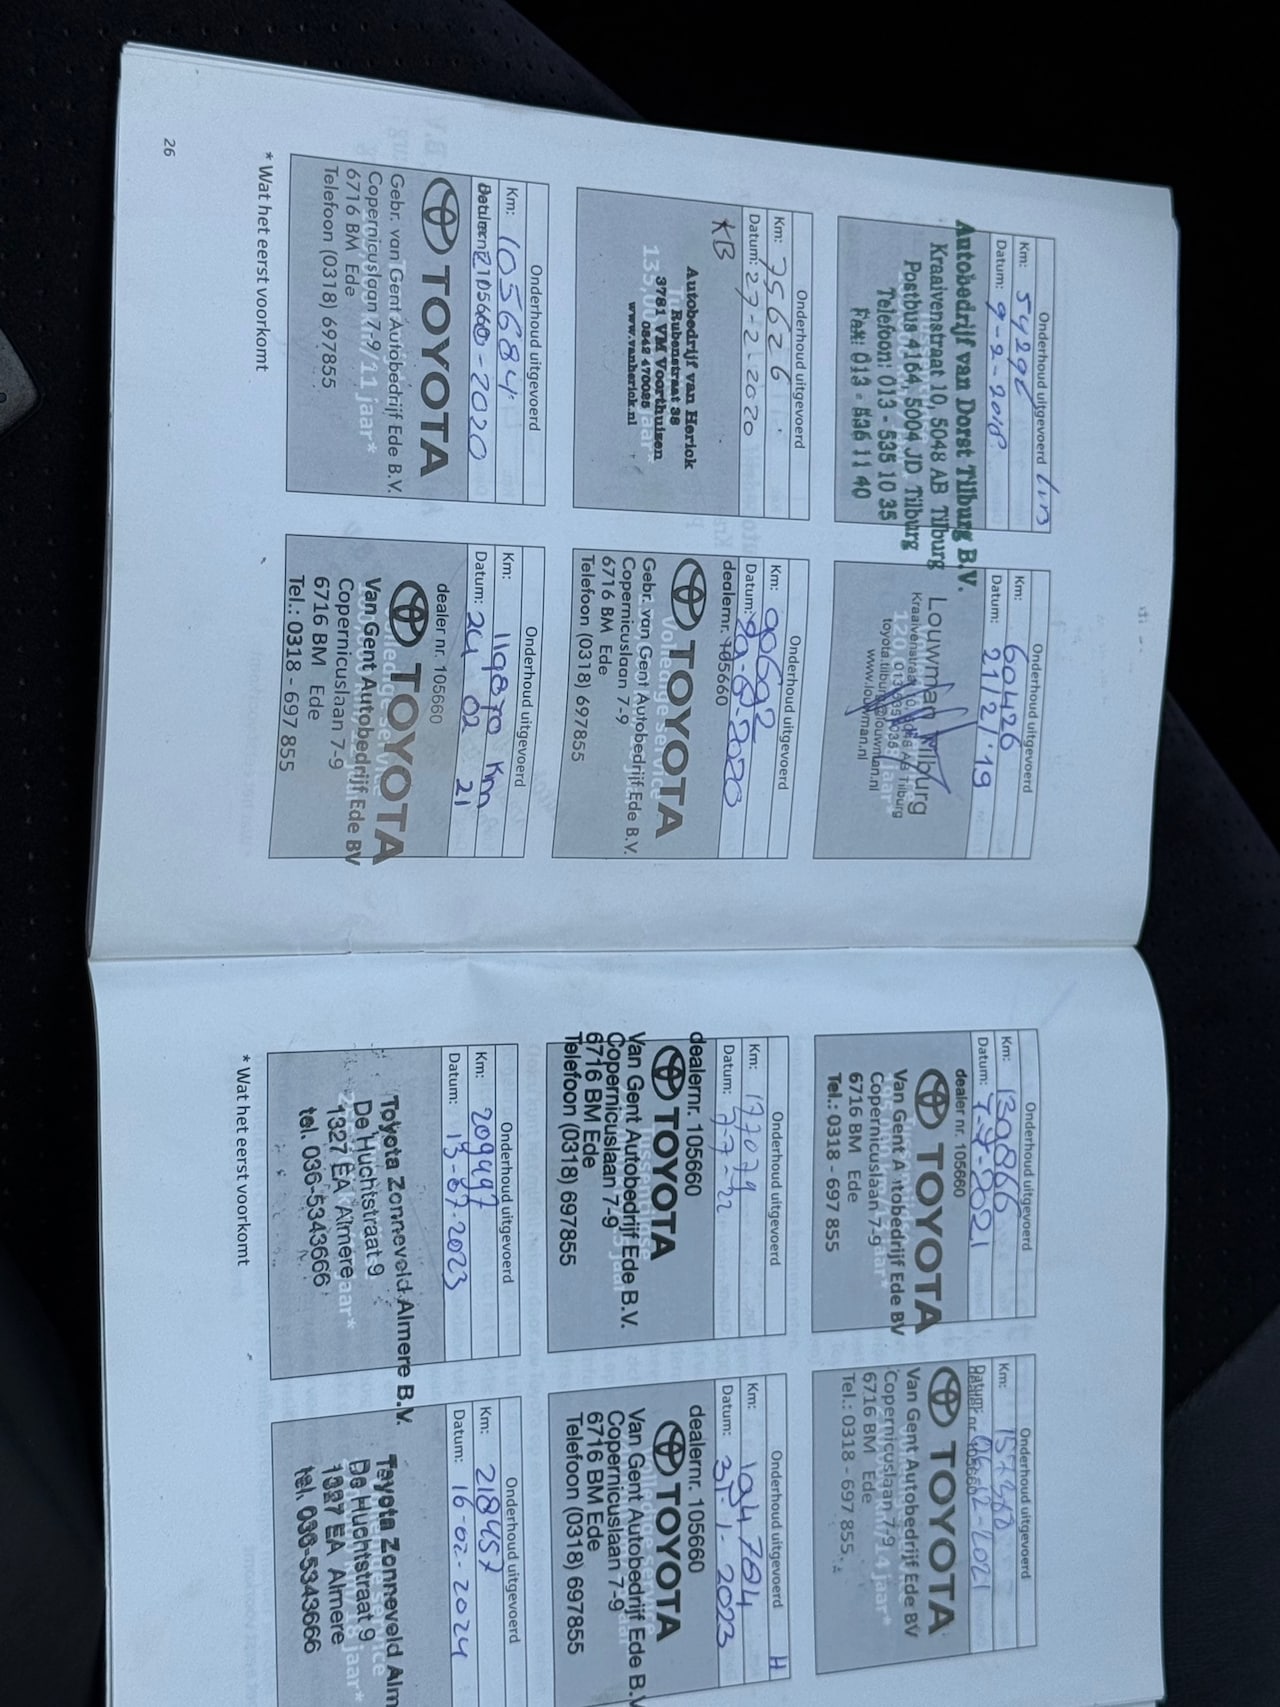 Onderhoud uitgevoerd
Km: 54296
Datum: 9-2-2018
Autobedrijf van Dorst Tilburg B.V.
Kraaivenstraat 10, 5048 AB Tilburg
Postbus 4164, 5004 JD Tilburg
Telefoon: 013 - 535 10 35
Fax: 013 - 536 11 40
Onderhoud uitgevoerd
Km: 60426
Datum: 21/2/'19
Louwman Tilburg
Kraaivenstraat
toyota.tilburg@louwman.nl
www.louwman.nl
Onderhoud uitgevoerd
Km: 75626
Datum: 27-2-2020
KB
Autobedrijf van Heriok
Rubenstraat 38
3781 VM Voorthuizen
0342 470028
www.vanheriok.nl
Onderhoud uitgevoerd
Km: 90692
Datum:
dealernr. 105660
TOYOTA
Gebr. van Gent Autobedrijf Ede B.V.
Copernicuslaan 7-9
6716 BM Ede
Telefoon (0318) 697855
Onderhoud uitgevoerd
Km: 105684
TOYOTA
Gebr. van Gent Autobedrijf Ede B.V.
Copernicuslaan 7-9
6716 BM Ede
Telefoon (0318) 697855
Onderhoud uitgevoerd
Km: 119870 km
Datum: 24 02 21
dealer nr. 105660
TOYOTA
Van Gent Autobedrijf Ede BV
Copernicuslaan 7-9
6716 BM Ede
Tel.: 0318 - 697 855
* Wat het eerst voorkomt
26
Onderhoud uitgevoerd
Km: 139866
Datum: 7-7-2021
dealer nr. 105660
TOYOTA
Van Gent Autobedrijf Ede BV
Copernicuslaan 7-9
6716 BM Ede
Tel.: 0318 - 697 855
Onderhoud uitgevoerd
Km:
Datum:
TOYOTA
Van Gent Autobedrijf Ede BV
Copernicuslaan 7-9
6716 BM Ede
Tel.: 0318 - 697 855
Onderhoud uitgevoerd
Km: 177079
Datum: 7-7-22
dealernr. 105660
TOYOTA
Van Gent Autobedrijf Ede B.V.
Copernicuslaan 7-9
6716 BM Ede
Telefoon (0318) 697855
Onderhoud uitgevoerd H
Km: 194764
Datum: 31-1-2023
dealernr. 105660
TOYOTA
Van Gent Autobedrijf Ede B.V.
Copernicuslaan 7-9
6716 BM Ede
Telefoon (0318) 697855
Onderhoud uitgevoerd
Km: 209497
Datum: 13-07-2023
Toyota Zonneveld Almere B.V.
De Huchtstraat 9
1327 EA Almere
tel. 036-5343666
Onderhoud uitgevoerd
Km: 218457
Datum: 16-02-2024
Toyota Zonneveld Alm
De Huchtstraat 9
1327 EA Almere
tel. 036-5343666
* Wat het eerst voorkomt